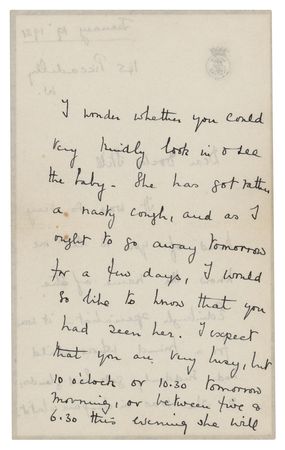 February 19th 1931
145 Piccadilly
W.
I wonder whether you could
very kindly look in & see
the baby. She has got rather
a nasty cough, and as I
ought to go away tomorrow
for a few days, I would
so like to know that you
had seen her. I expect
that you are very busy, but
10 o'clock or 10.30 tomorrow
morning, or between five &
6.30 this evening she will